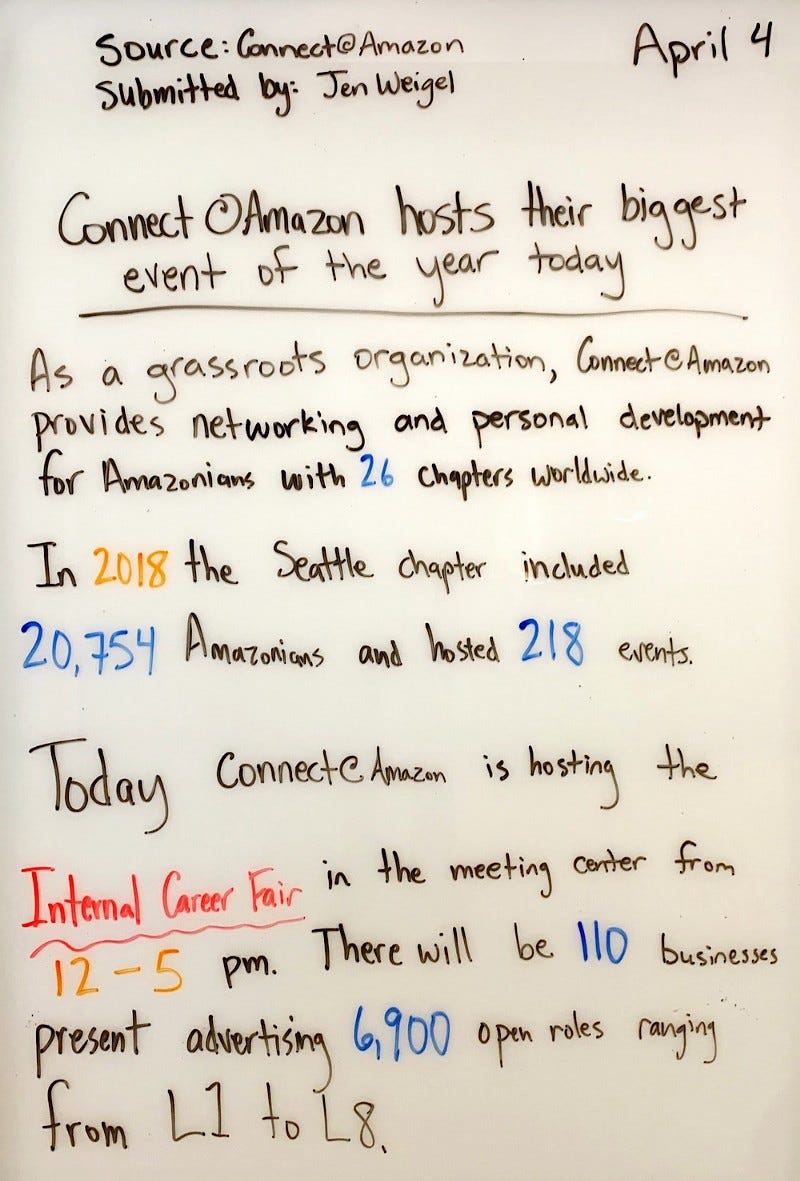 Source: Connect@Amazon
April 4
Submitted by: Jen Weigel
Connect@Amazon hosts their biggest
event of the year today
As a grassroots organization, Connect@Amazon
provides networking and personal development
for Amazonians with 26 chapters worldwide.
In 2018 the Seattle chapter included
20,754 Amazonians and hosted 218 events.
Today Connect@Amazon is hosting the
Internal Career Fair in the meeting center from
12-5 pm. There will be 110 businesses
present advertising 6,900 open roles ranging
from L1 to L8.